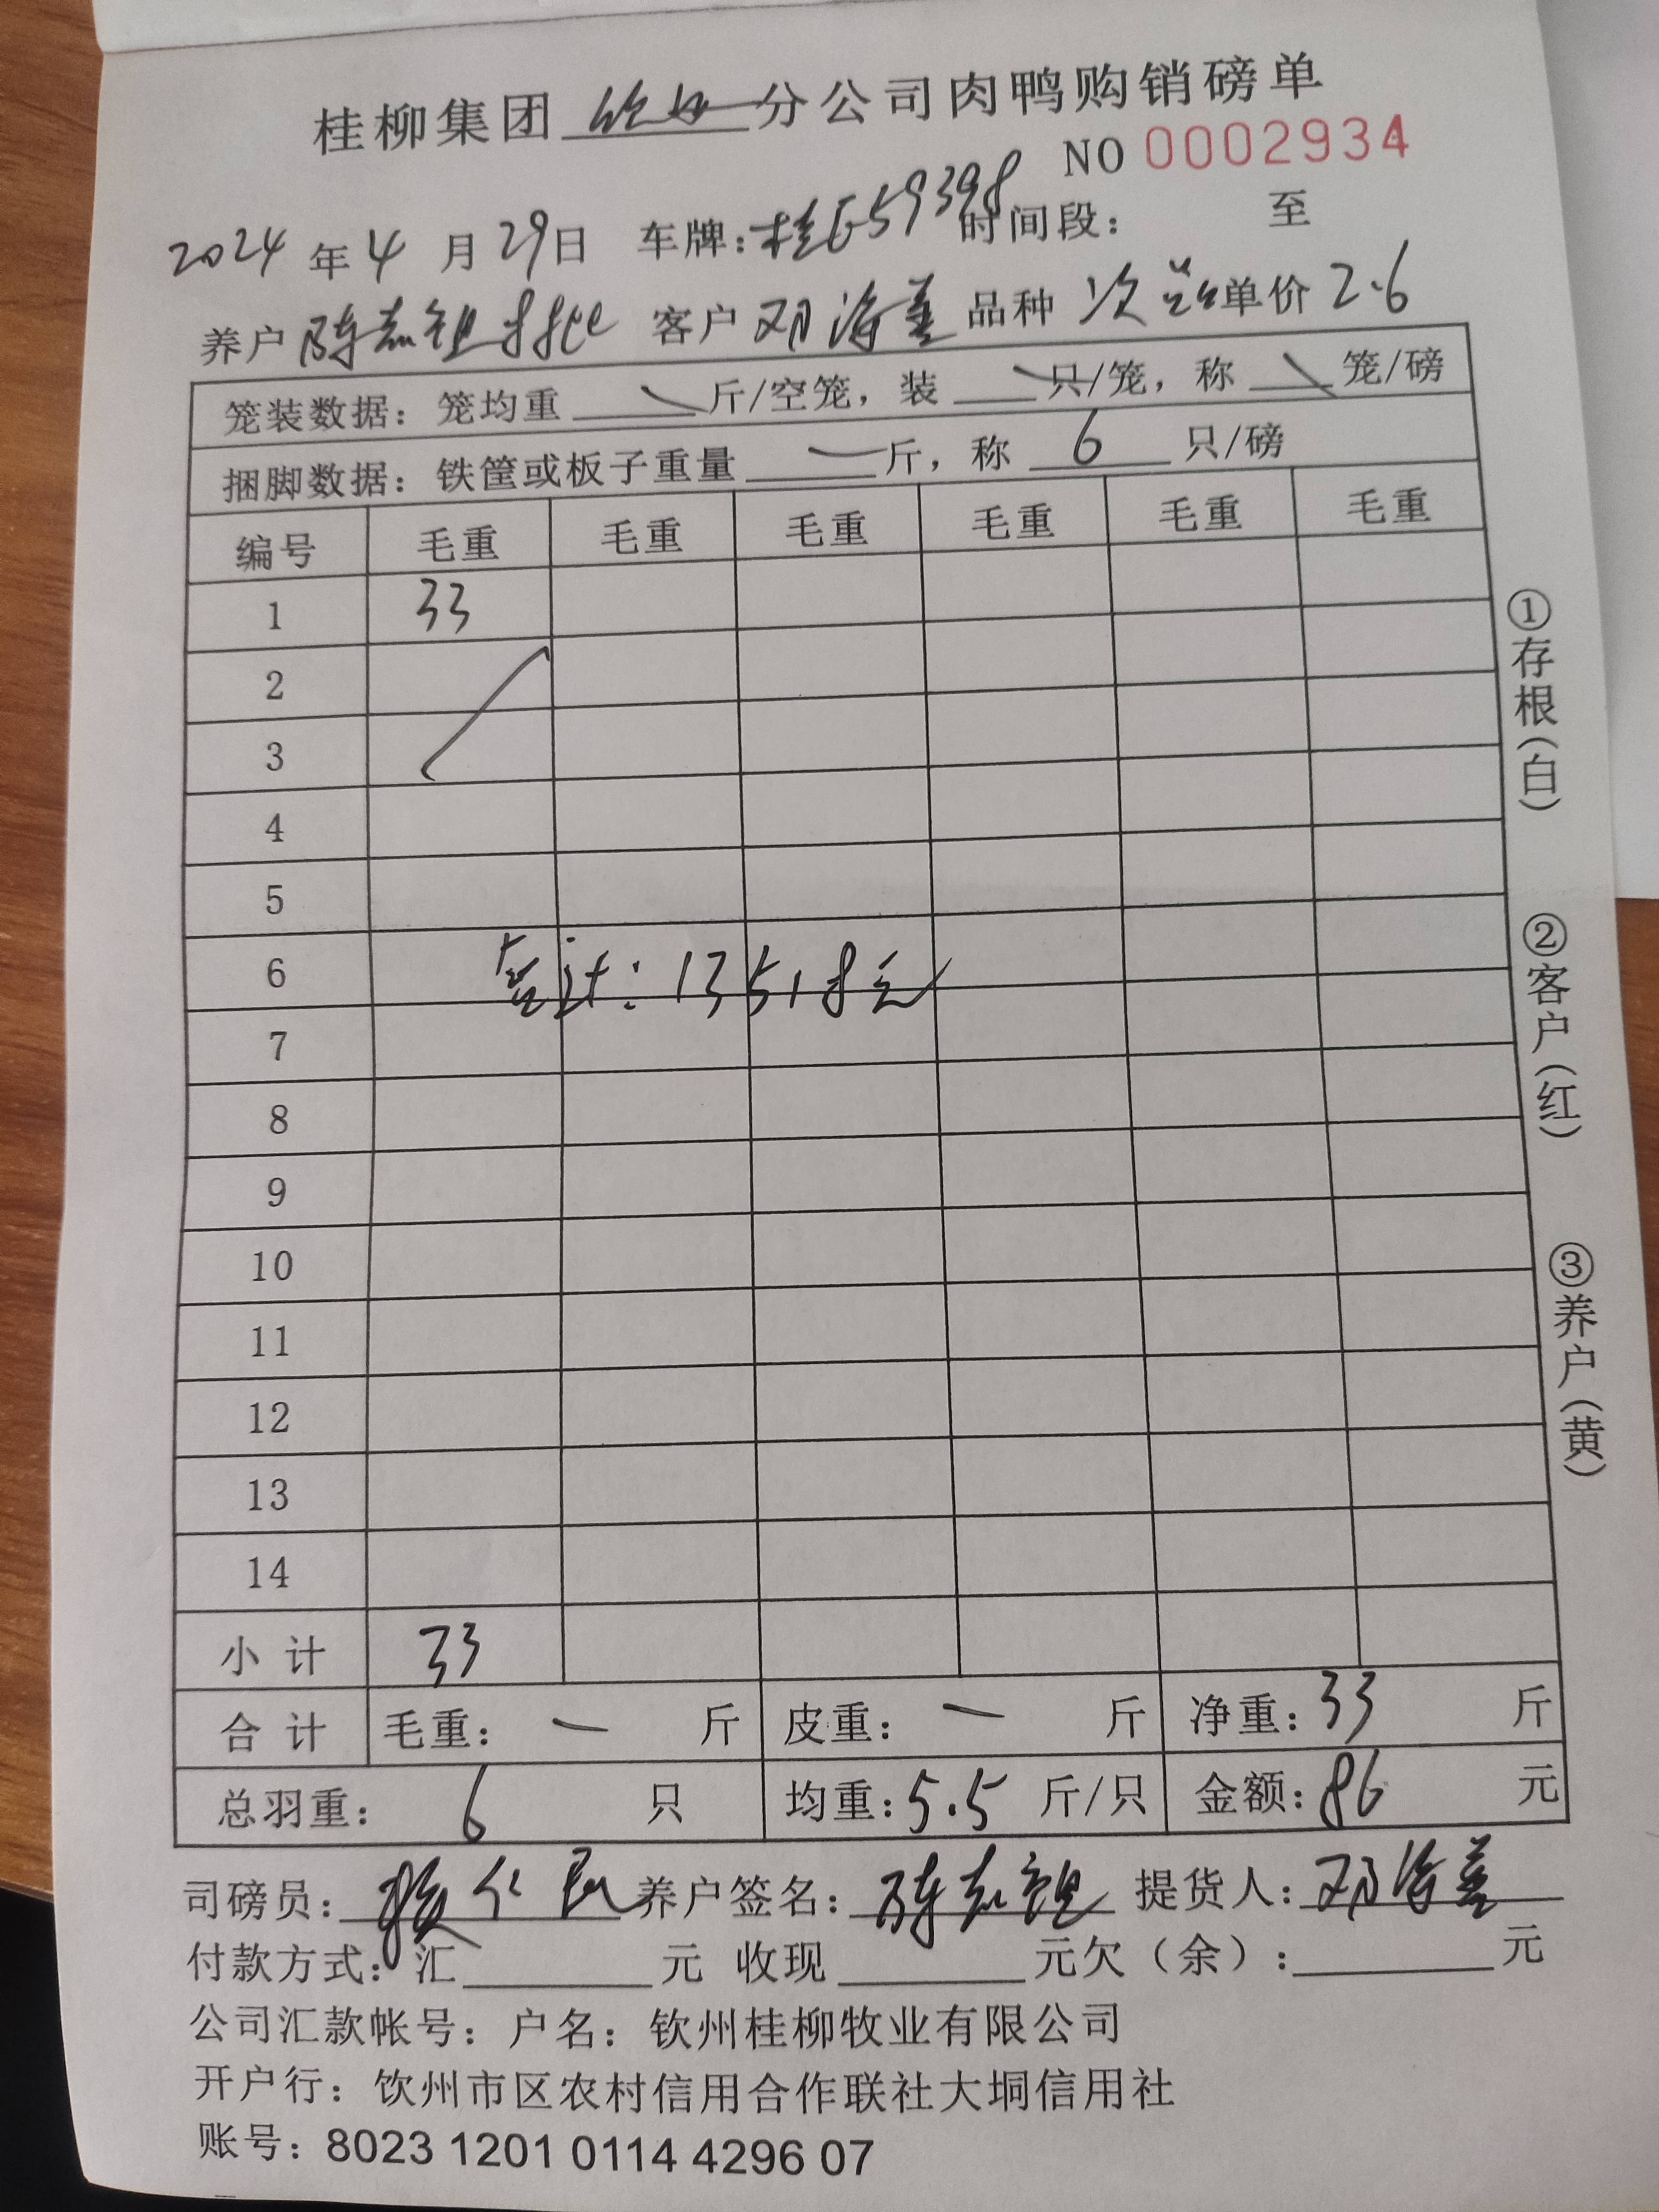 桂柳集团 钦州 分公司肉鸭购销磅单
NO 0002934
2024 年 4 月 29 日 车牌: 桂E59398 时间段: 至
养户 陈志 客户 邓海 品种 次 单价 2.6
笼装数据: 笼均重 斤/空笼, 装 只/笼, 称 笼/磅
捆脚数据: 铁筐或板子重量 一 斤, 称 6 只/磅
编号 毛重 毛重 毛重 毛重 毛重 毛重
1 33
2
3
4
5
6 合计: 13518元
7
8
9
10
11
12
13
14
小计 33
合计 毛重: 一 斤 皮重: 一 斤 净重: 33 斤
总羽重: 6 只 均重: 5.5 斤/只 金额: 86 元
司磅员: 养户签名: 陈志 提货人: 邓海
付款方式: 汇 元 收现 元欠(余): 元
公司汇款帐号: 户名: 钦州桂柳牧业有限公司
开户行: 钦州市区农村信用合作联社大垌信用社
账号: 8023 1201 0114 4296 07
①存根(白)
②客户(红)
③养户(黄)